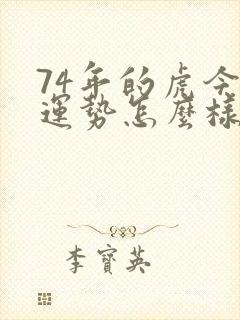 74年的虎今
運勢怎麼樣
李寶英